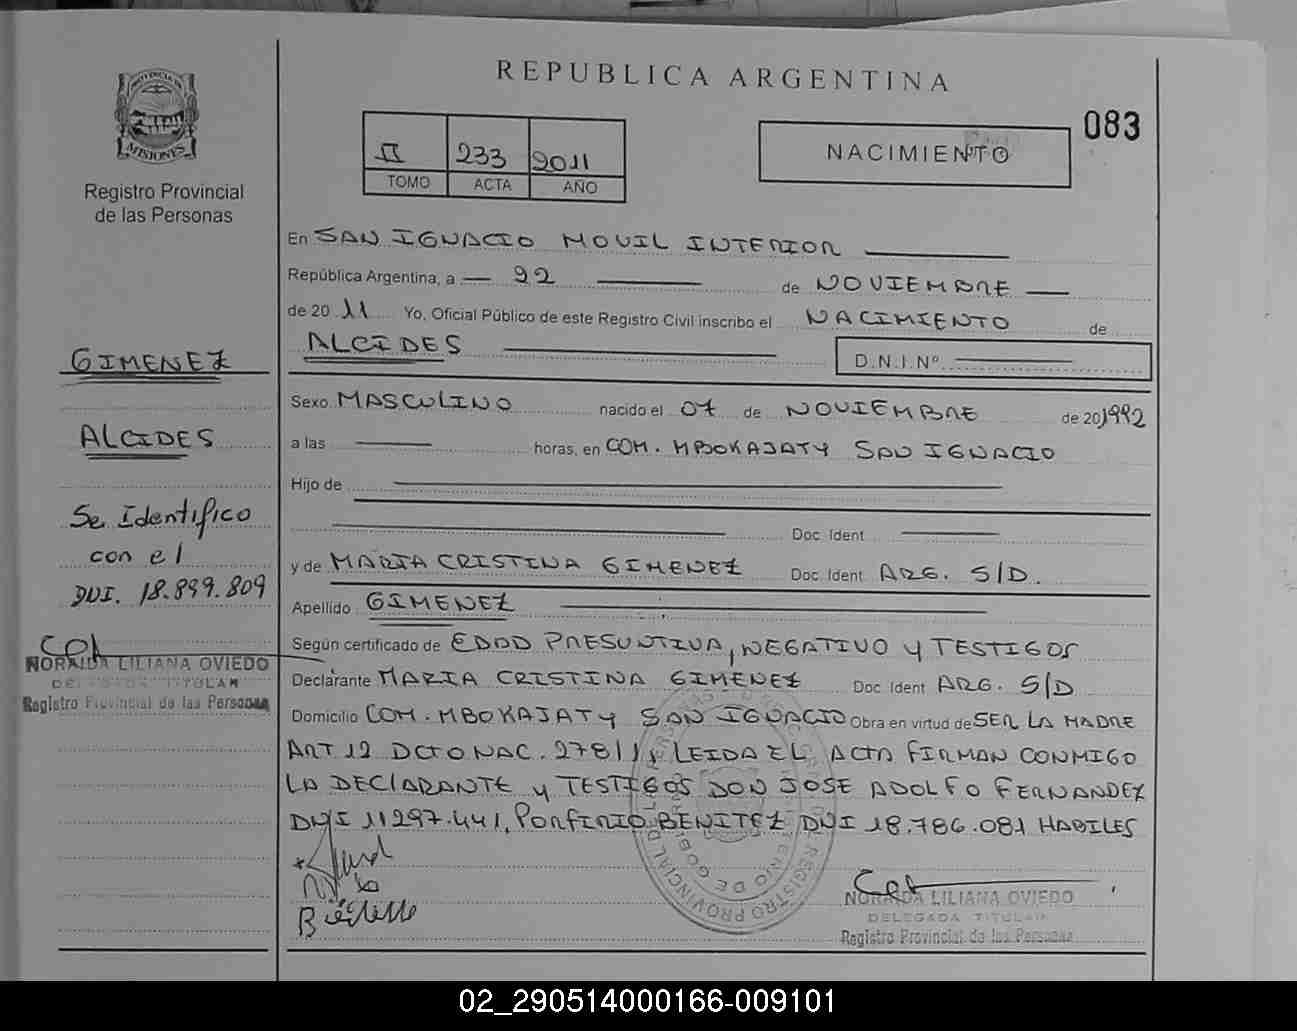 REPUBLICA ARGENTINA
083
PROVINCIA DE
MISIONES
Registro Provincial
de las Personas
II 233 2011
TOMO ACTA AÑO
NACIMIENTO
En SAN IGNACIO MOVIL INTERIOR
República Argentina, a 22 de NOVIEMBRE
de 20 11 Yo, Oficial Público de este Registro Civil inscribo el NACIMIENTO de
ALCIDES D.N.I.Nº
Sexo MASCULINO nacido el 07 de NOVIEMBRE de 20 1992
a las horas, en COM. MBOKAJATY SAN IGNACIO
Hijo de
Doc. Ident
y de MARIA CRISTINA GIMENEZ Doc. Ident ARG. S/D.
Apellido GIMENEZ
Según certificado de EDAD PRESUNTIVA, NEGATIVO Y TESTIGOS
Declarante MARIA CRISTINA GIMENEZ Doc Ident ARG. S/D
Domicilio COM. MBOKAJATY SAN IGNACIO Obra en virtud de SER LA MADRE
ART 12 DCTO NAC. 278/11, LEIDA EL ACTA FIRMAN CONMIGO
LA DECLARANTE Y TESTIGOS DON JOSE ADOLFO FERNANDEZ
DNI 11297.441, PORFIRIO BENITEZ DNI 18.786.081 HABILES
GIMENEZ
ALCIDES
Se Identifico
con el
DNI. 18.899.809
NORAIDA LILIANA OVIEDO
DELEGADA TITULAR
Registro Provincial de las Personas
NORAIDA LILIANA OVIEDO
DELEGADA TITULAR
Registro Provincial de las Personas
02_290514000166-009101